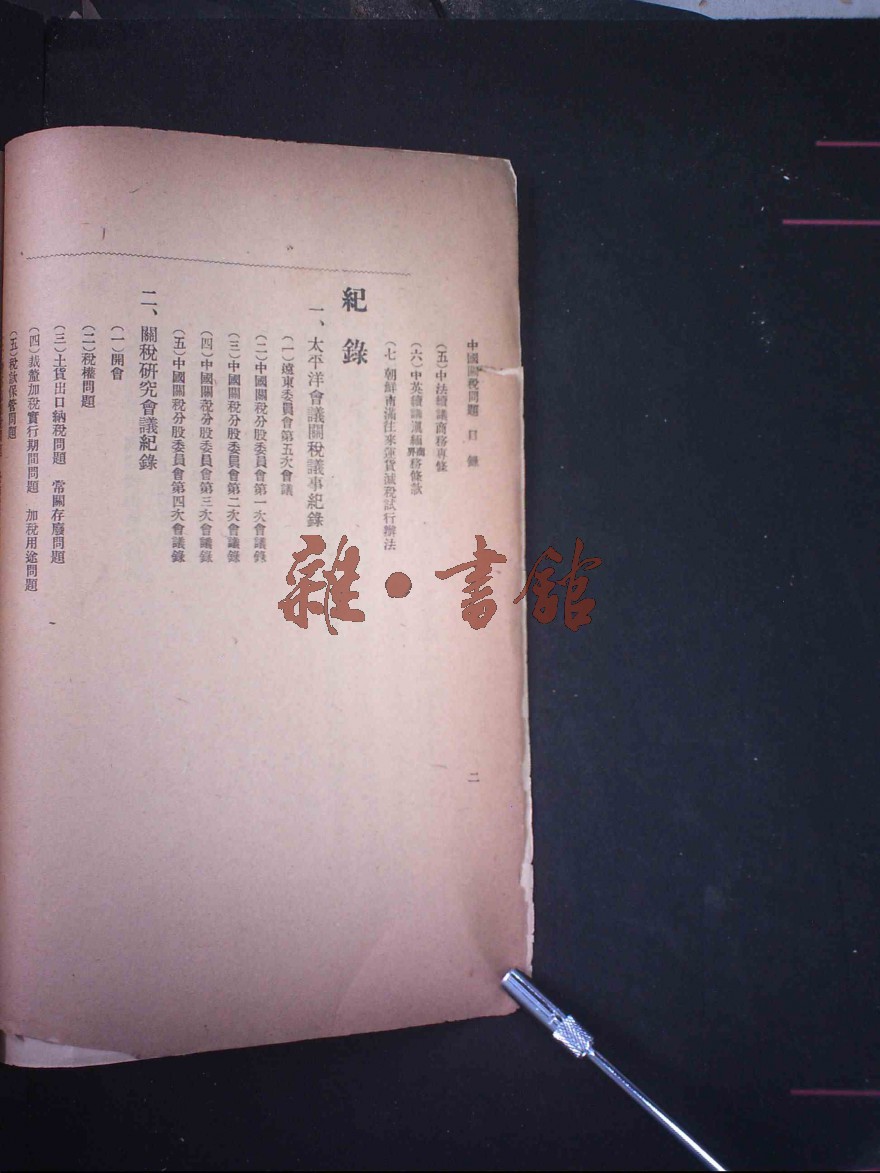 中國關稅問題 目錄
二
(五)中法續議商務專條
(六)中英續議滇緬界商務條款
(七)朝鮮南滿往來運貨減稅試行辦法
紀錄
一、太平洋會議關稅議事紀錄
(一)遠東委員會第五次會議
(二)中國關稅分股委員會第一次會議錄
(三)中國關稅分股委員會第二次會議錄
(四)中國關稅分股委員會第三次會議錄
(五)中國關稅分股委員會第四次會議錄
二、關稅研究會議紀錄
(一)開會
(二)稅權問題
(三)土貨出口納稅問題 常關存廢問題
(四)裁釐加稅實行期間問題 加稅用途問題
(五)稅款保管問題
雜·書館